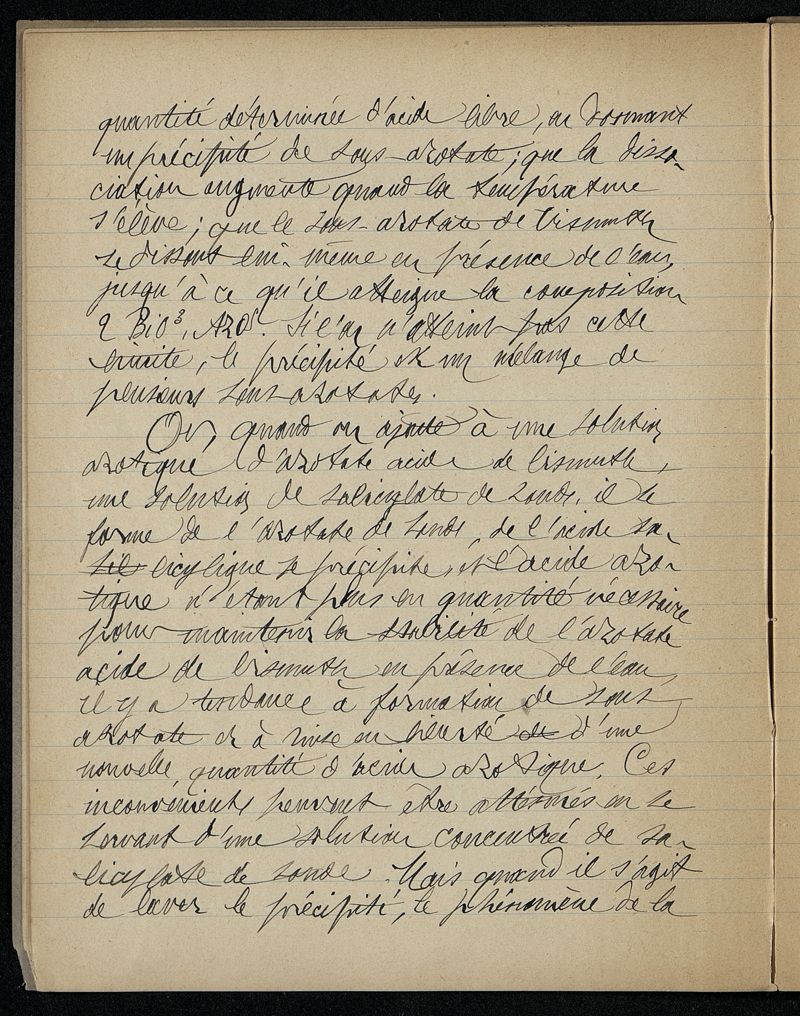 quantité déterminée d'acide libre, en donnant
un précipité de sous-azotate; que la disso-
ciation augmente quand la température
s'élève; que le sous-azotate de bismuth
se dissout lui-même en présence de l'eau,
jusqu'à ce qu'il atteigne la composition
2 BiO³, AzO⁵. Si l'on n'atteint pas cette
limite, le précipité est un mélange de
plusieurs sous azotates.
Or, quand on ajoute à une solution
azotique d'azotate acide de bismuth,
une solution de salicylate de soude, il se
forme de l'azotate de soude, de l'acide sa-
licylique se précipite, et l'acide azo-
tique n'étant plus en quantité nécessaire
pour maintenir la stabilité de l'azotate
acide de bismuth en présence de l'eau,
il y a tendance à formation de sous
azotate et à mise en liberté de d'une
nouvelle quantité d'acide azotique. Ces
inconvénients peuvent être atténués en se
servant d'une solution concentrée de sa-
licylate de soude. Mais quand il s'agit
de laver le précipité, le phénomène de la